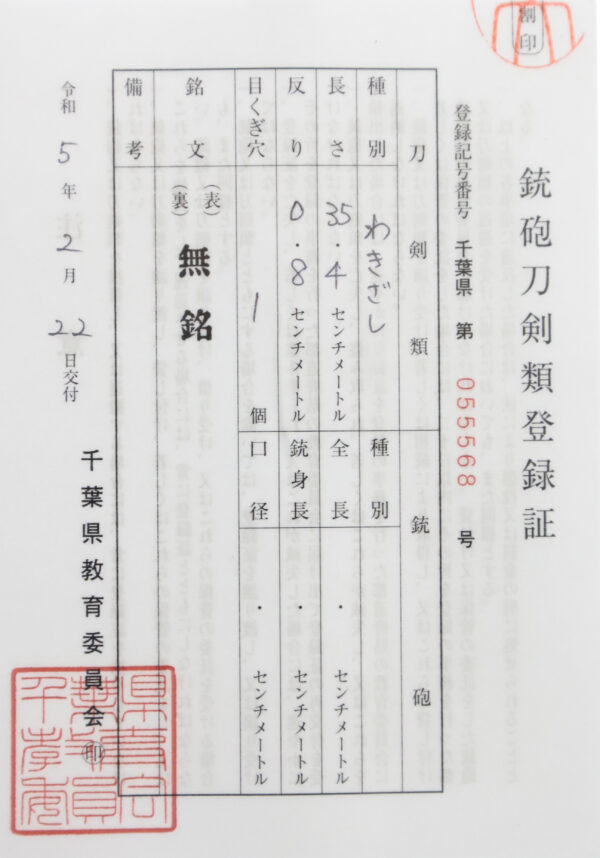 割印
銃砲刀剣類登録証
登録記号番号 千葉県 第 055568 号
刀剣類 銃砲
種別 わきざし 種別
長さ 35.4センチメートル 全長 ・ センチメートル
反り 0.8センチメートル 銃身長 ・ センチメートル
目くぎ穴 1個 口径 ・ センチメートル
銘文 (表) (裏) 無銘
備考
令和5年2月22日交付
千葉県教育委員会 印